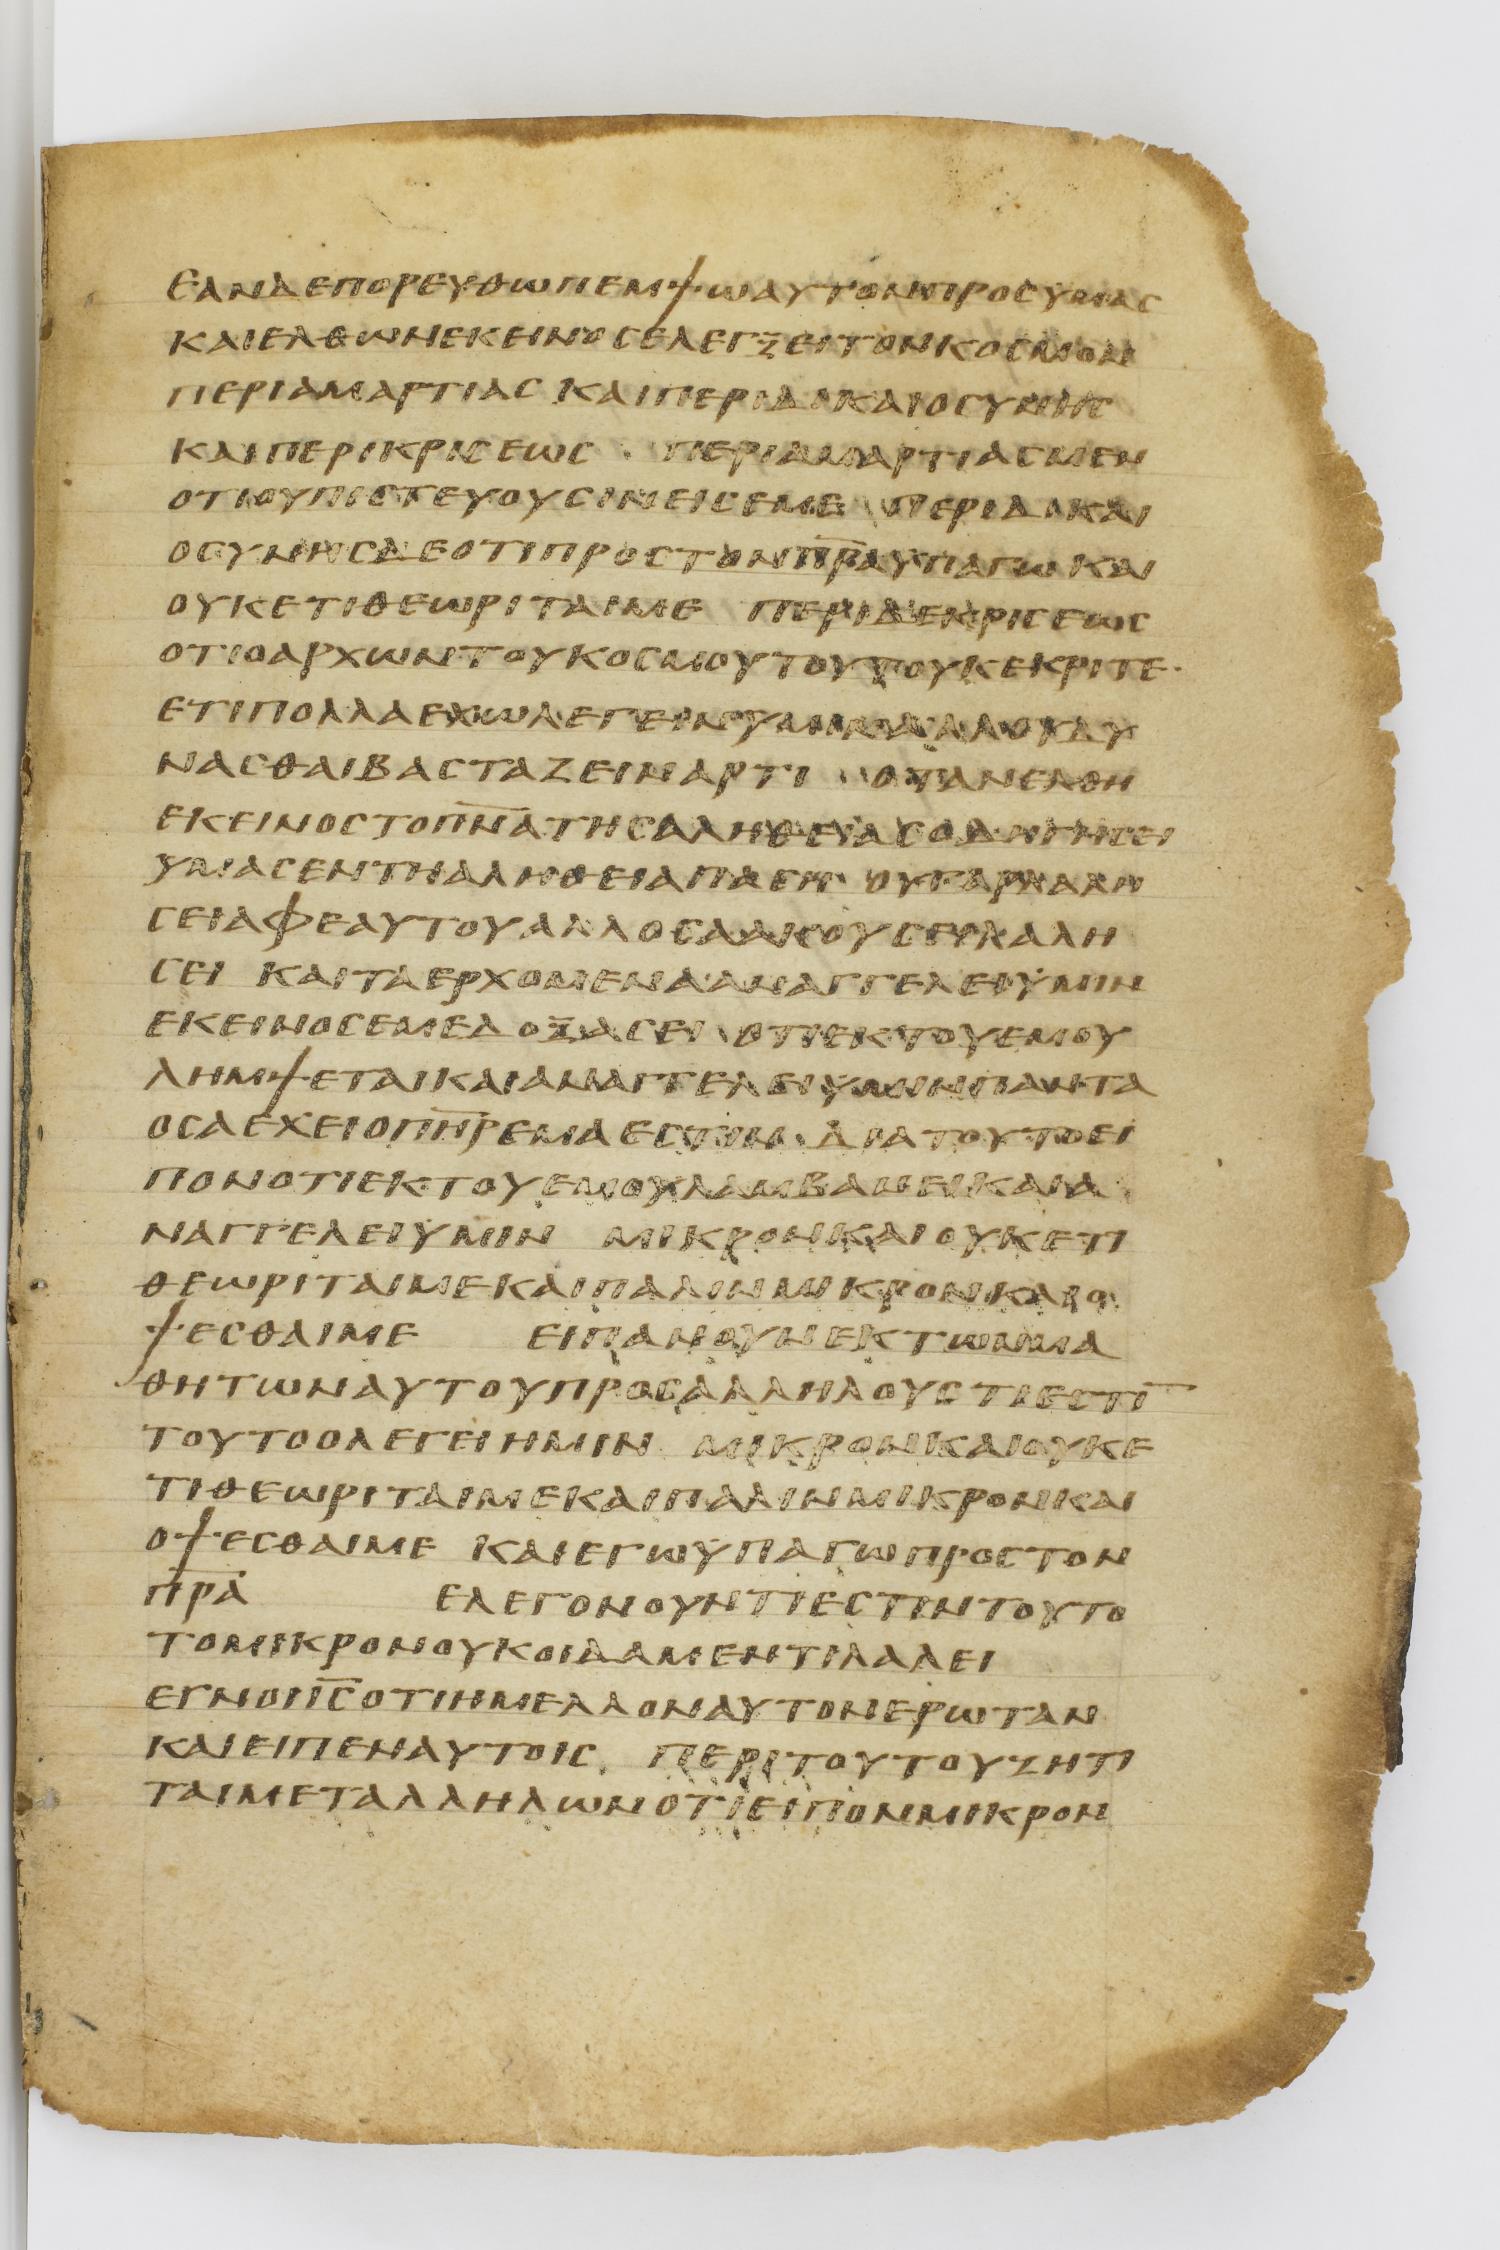 ΕΑΝΔΕΠΟΡΕΥΘΩΠΕΜΨΩΑΥΤΟΝΠΡΟΣΥΜΑΣ
ΚΑΙΕΛΘΩΝΕΚΕΙΝΟΣΕΛΕΓΞΕΙΤΟΝΚΟΣΜΟΝ
ΠΕΡΙΑΜΑΡΤΙΑΣΚΑΙΠΕΡΙΔΙΚΑΙΟΣΥΝΗΣ
ΚΑΙΠΕΡΙΚΡΙΣΕΩΣ · ΠΕΡΙΑΜΑΡΤΙΑΣΜΕΝ
ΟΤΙΟΥΠΙΣΤΕΥΟΥΣΙΝΕΙΣΕΜΕ ΠΕΡΙΔΙΚΑΙ
ΟΣΥΝΗΣΔΕΟΤΙΠΡΟΣΤΟΝΠ̅Ρ̅Α̅ΥΠΑΓΩΚΑΙ
ΟΥΚΕΤΙΘΕΩΡΙΤΑΙΜΕ ΠΕΡΙΔΕΚΡΙΣΕΩΣ
ΟΤΙΟΑΡΧΩΝΤΟΥΚΟΣΜΟΥΤΟΥΤΟΥΚΕΚΡΙΤΕ·
ΕΤΙΠΟΛΛΑΕΧΩΛΕΓΕΙΝΥΜΙΝΑΛΛΟΥΔΥ
ΝΑΣΘΑΙΒΑΣΤΑΖΕΙΝΑΡΤΙ · ΟΤΑΝΕΛΘΗ
ΕΚΕΙΝΟΣΤΟΠ̅Ν̅Α̅ΤΗΣΑΛΗΘΕΙΑΣΟΔΗΓΗΣΕΙ
ΥΜΑΣΕΝΤΗΑΛΗΘΕΙΑΠΑΣΗ ΟΥΓΑΡΛΑΛΗ
ΣΕΙΑΦΕΑΥΤΟΥΑΛΛΟΣΑΑΚΟΥΣΕΙΛΑΛΗ
ΣΕΙ ΚΑΙΤΑΕΡΧΟΜΕΝΑΑΝΑΓΓΕΛΕΙΥΜΙΝ
ΕΚΕΙΝΟΣΕΜΕΔΟΞΑΣΕΙ ΟΤΙΕΚΤΟΥΕΜΟΥ
ΛΗΜΨΕΤΑΙΚΑΙΑΝΑΓΓΕΛΕΙΥΜΙΝΠΑΝΤΑ
ΟΣΑΕΧΕΙΟΠ̅Η̅Ρ̅ΕΜΑΕΣΤΙΝ · ΔΙΑΤΟΥΤΟΕΙ
ΠΟΝΟΤΙΕΚΤΟΥΕΜΟΥΛΑΜΒΑΝΕΙΚΑΙΑ
ΝΑΓΓΕΛΕΙΥΜΙΝ ΜΙΚΡΟΝΚΑΙΟΥΚΕΤΙ
ΘΕΩΡΙΤΑΙΜΕΚΑΙΠΑΛΙΝΜΙΚΡΟΝΚΑΙΟ
ΨΕΣΘΑΙΜΕ ΕΙΠΑΝΟΥΝΕΚΤΩΝΜΑ
ΘΗΤΩΝΑΥΤΟΥΠΡΟΣΑΛΛΗΛΟΥΣΤΙΕΣΤΙ̅
ΤΟΥΤΟΟΛΕΓΕΙΗΜΙΝ ΜΙΚΡΟΝΚΑΙΟΥΚΕ
ΤΙΘΕΩΡΙΤΑΙΜΕΚΑΙΠΑΛΙΝΜΙΚΡΟΝΚΑΙ
ΟΨΕΣΘΑΙΜΕ ΚΑΙΕΓΩΥΠΑΓΩΠΡΟΣΤΟΝ
Π̅Ρ̅Α̅ ΕΛΕΓΟΝΟΥΝΤΙΕΣΤΙΝΤΟΥΤΟ
ΤΟΜΙΚΡΟΝΟΥΚΟΙΔΑΜΕΝΤΙΛΑΛΕΙ
ΕΓΝΟΙ̅Σ̅ΟΤΙΗΜΕΛΛΟΝΑΥΤΟΝΕΡΩΤΑΝ
ΚΑΙΕΙΠΕΝΑΥΤΟΙΣ ΠΕΡΙΤΟΥΤΟΥΖΗΤΙ
ΤΑΙΜΕΤΑΛΛΗΛΩΝΟΤΙΕΙΠΟΝΜΙΚΡΟΝ